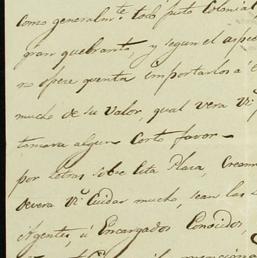 como generalmte. todo fruto Colonial,
gran quebranto, y segun el aspec
no ofrece quenta importarlos á
mucho de su valor, qual vera Vm.
tomara algun corto favor —
por letras sobre esta Plaza,
devera Vm. Cuidar mucho, sean las
Agentes, ú Encargados Conocidos,